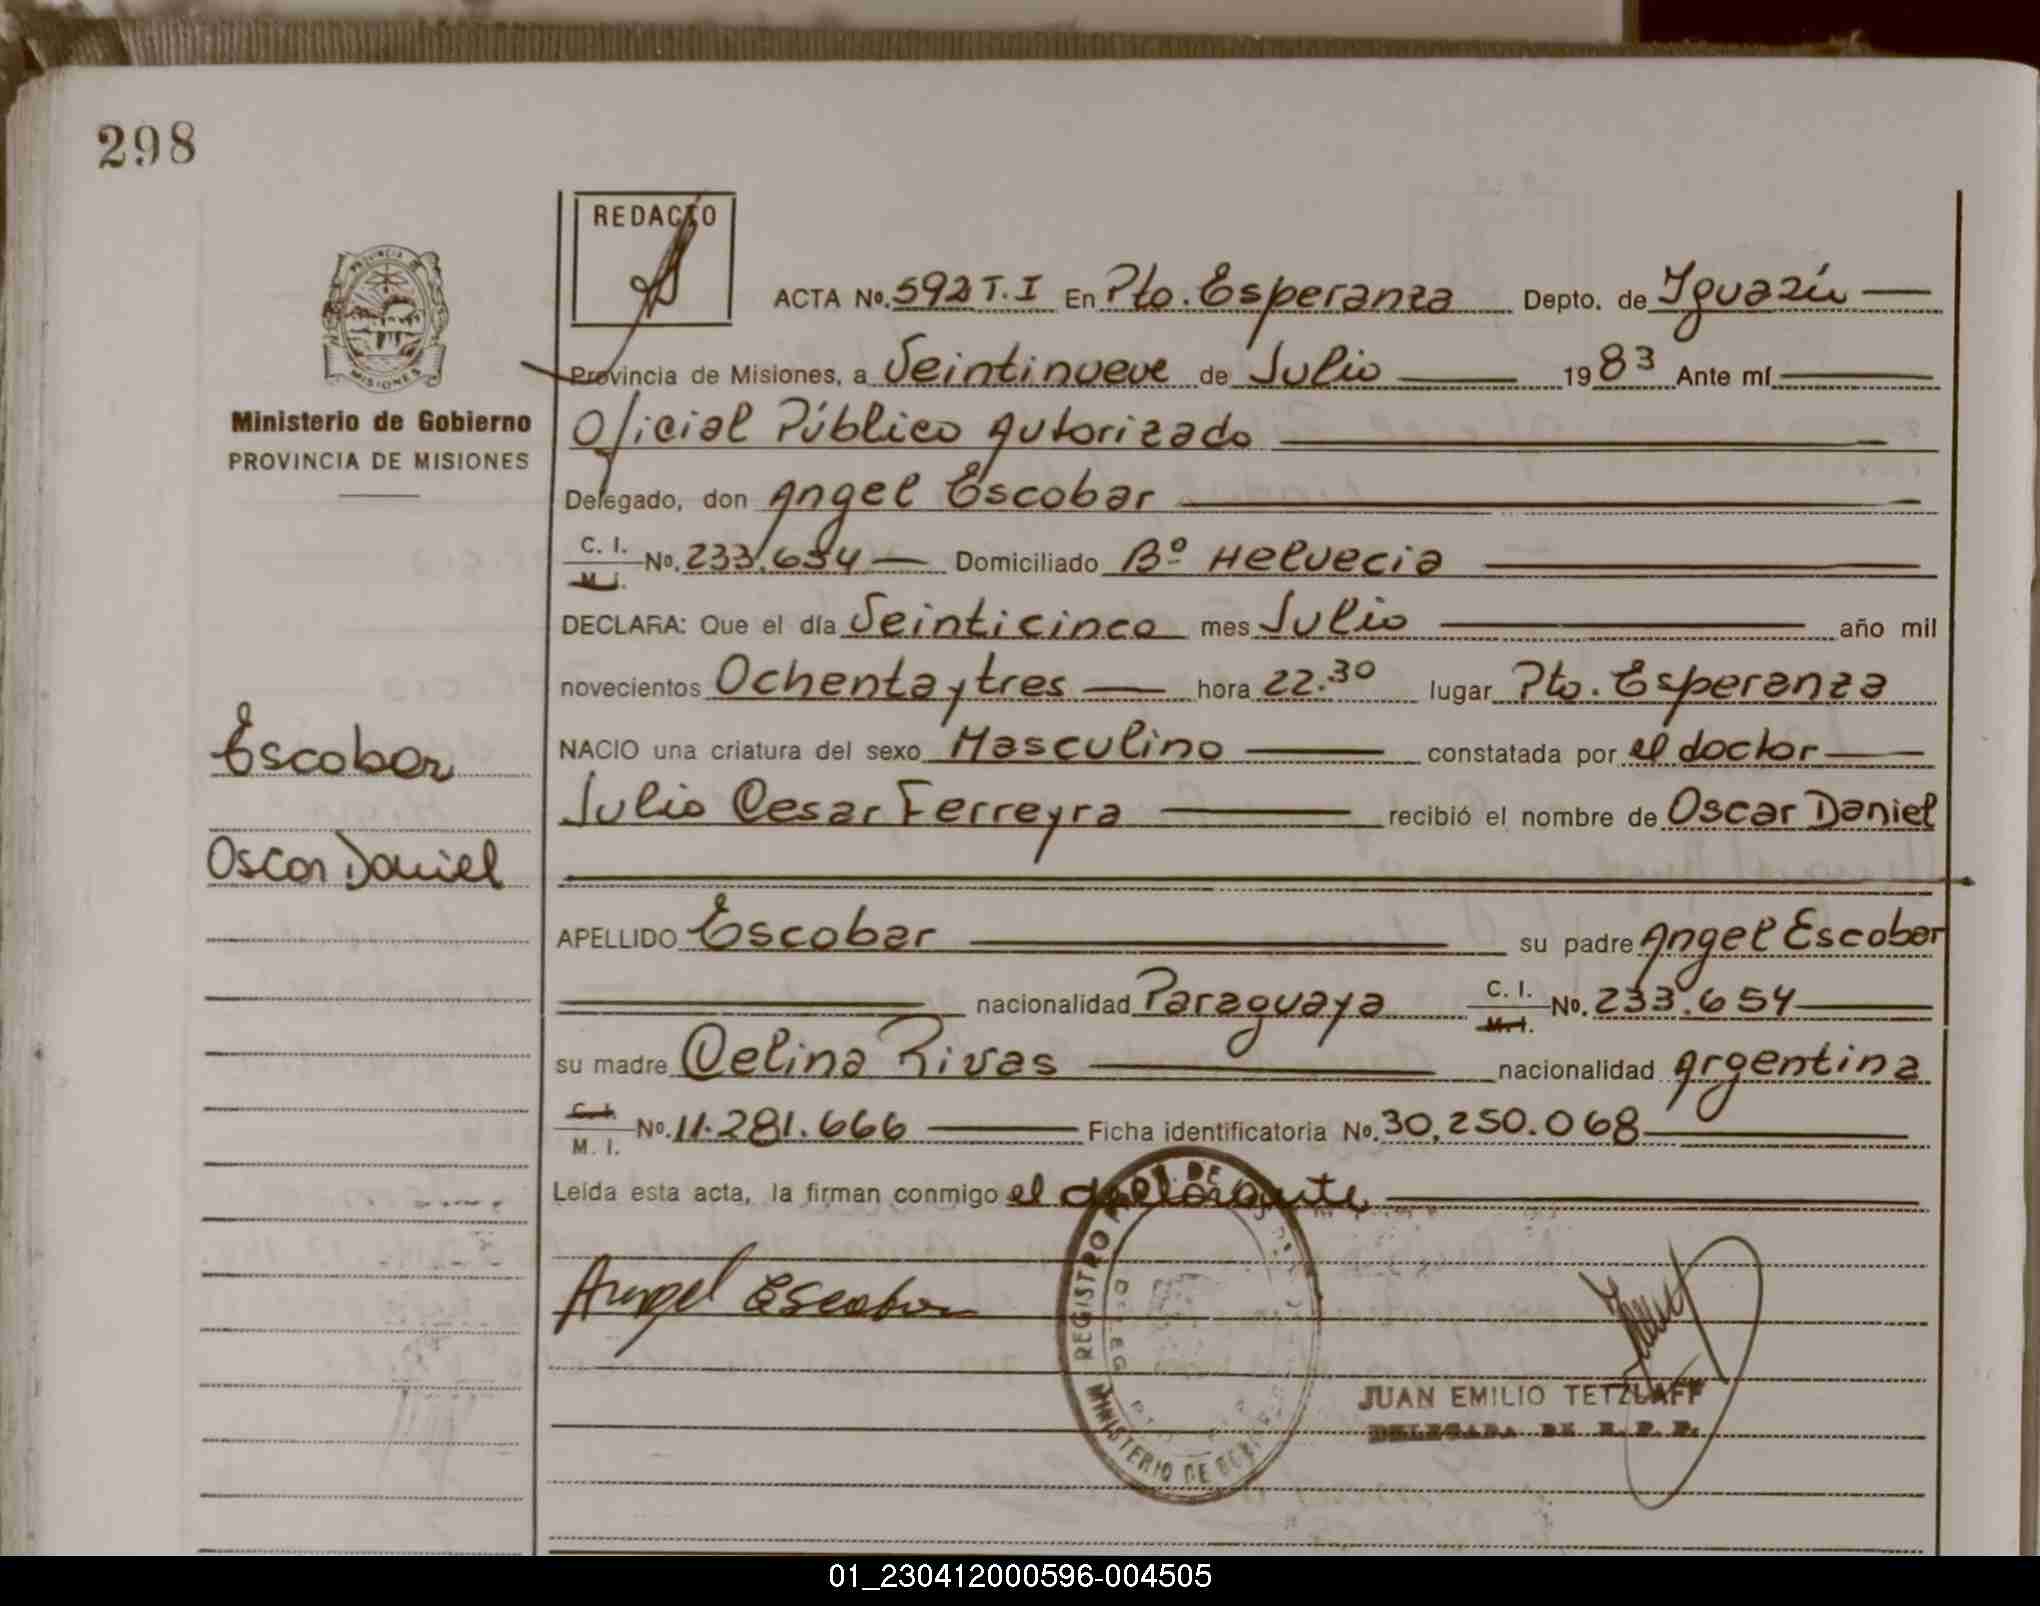 298
REDACTO
ACTA No. 592 T.I En Pto. Esperanza Depto. de Iguazú
Provincia de Misiones, a Veintinueve de Julio 1983 Ante mí
Oficial Público Autorizado
Delegado, don Angel Escobar
C. I. M. I. No. 233.654 Domiciliado Bº Helvecia
DECLARA: Que el día Veinticinco mes Julio año mil
novecientos Ochenta y tres hora 22.30 lugar Pto. Esperanza
NACIO una criatura del sexo Masculino constatada por el doctor
Julio Cesar Ferreyra recibió el nombre de Oscar Daniel
APELLIDO Escobar su padre Angel Escobar
nacionalidad Paraguaya C. I. M. I. No. 233.654
su madre Celina Rivas nacionalidad Argentina
C. I. M. I. No. 11.281.666 Ficha identificatoria No. 30,250.068
Leída esta acta, la firman conmigo el declarante
PROVINCIA DE
MISIONES
Ministerio de Gobierno
PROVINCIA DE MISIONES
Escobar
Oscar Daniel
Angel Escobar
REGISTRO DE
MINISTERIO DE
JUAN EMILIO TETZLAFF
DE R. P. P.
01_230412000596-004505